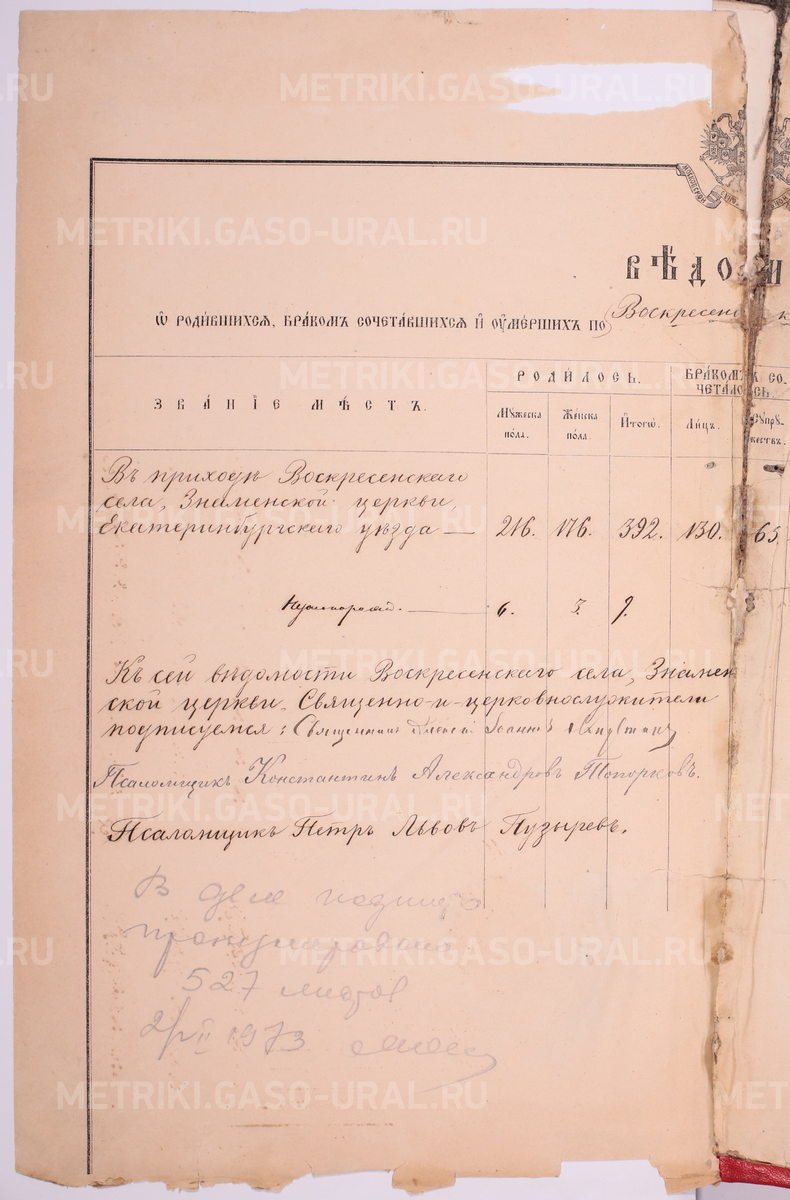 METRIKI.GASO-URAL.RU
ВѢДОМ
Ѡ РОДИ́ВШИХСѦ, БРА́КОМЪ СОЧЕТА́ВШИХСѦ И҆ ОУ҆МЕ́РШИХЪ ПО
Воскресенск
ЗВА́НІЕ МѢ́СТЪ.
РОДИ́ЛОСЬ.
БРА́КОМЪ СО-
ЧЕТА́ЛОСЬ.
Мꙋ́жеска по́ла.
Же́нска по́ла
И҆тогѡ̀.
Ли́цъ.
Сꙋпрꙋ-
жествъ.
Въ приходѣ Воскресенскаго
села, Знаменской церкви,
Екатеринбургскаго уѣзда — 216. 176. 392. 130. 65.
6. 3. 9.
Къ сей вѣдомости Воскресенскаго села, Знамен
ской церкви, Священно-и-церковнослужители
подписуемся: Священникъ Іоаннъ
Псаломщикъ Константинъ Александровъ Топорковъ.
Псаломщикъ Петръ Львовъ Пузыревъ.
В деле подшито
пронумеровано
527 листов
1973